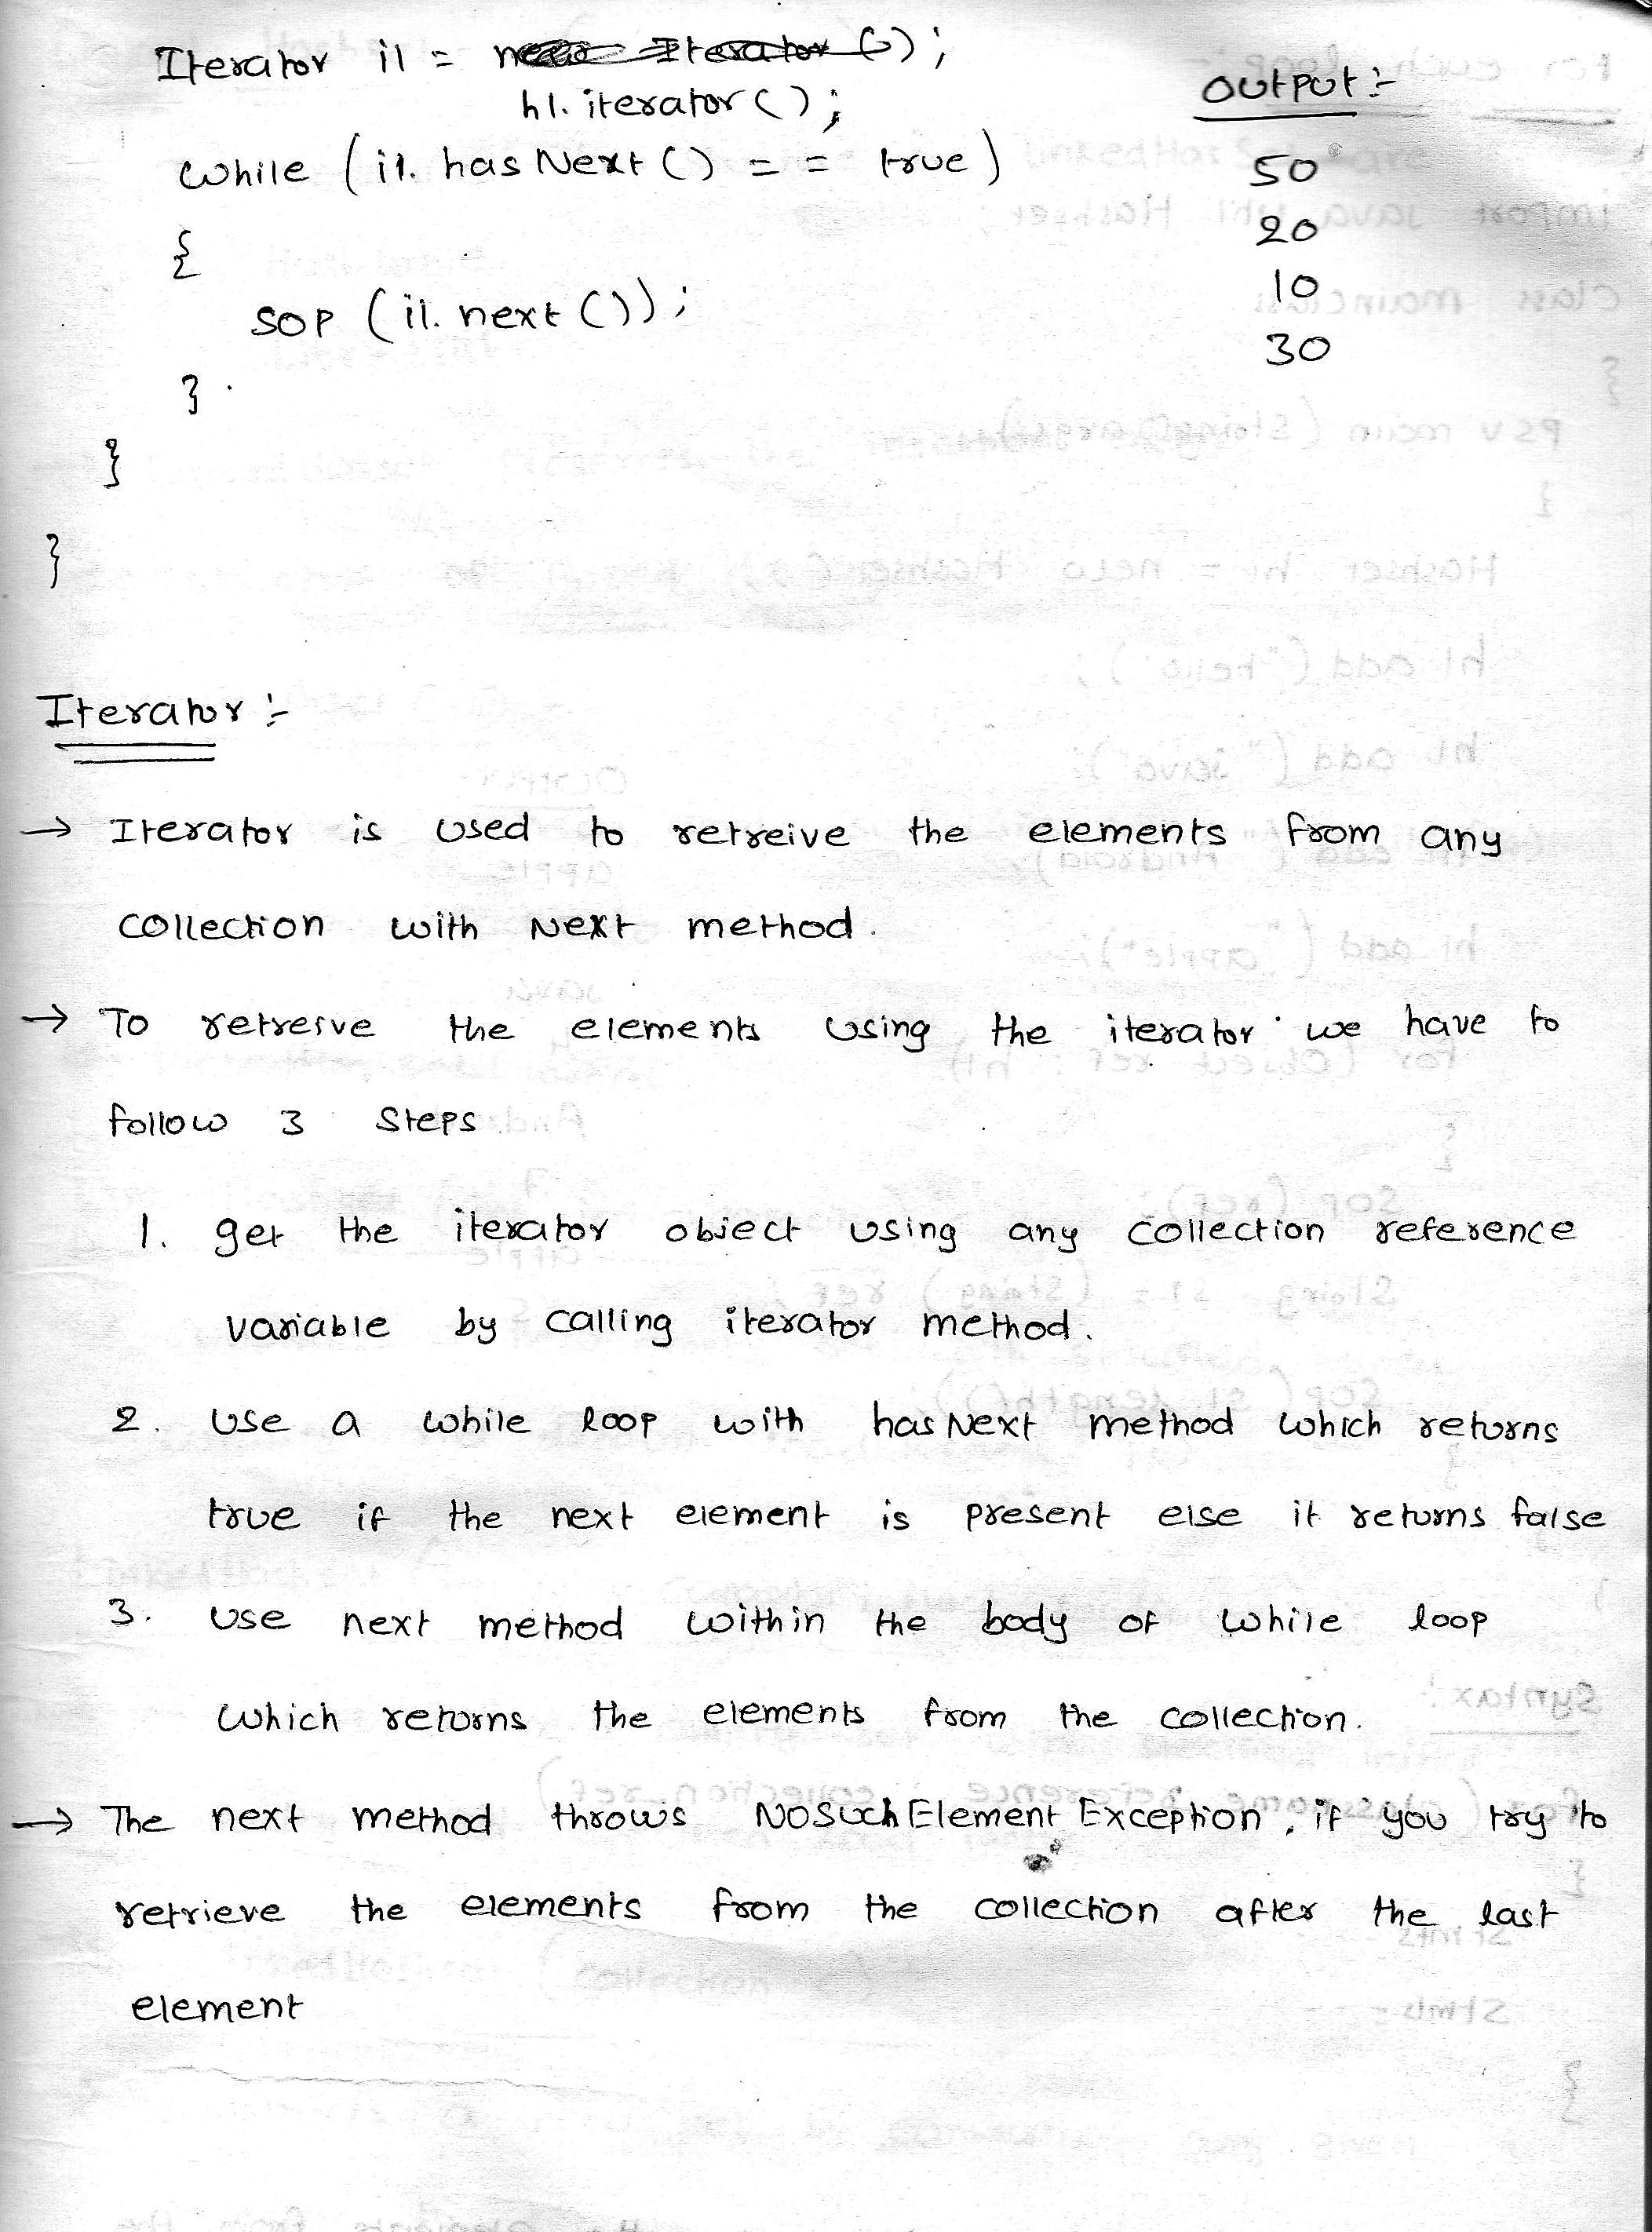 Iterator i1 = new Iterator();
h1.iterator();
while (i1.hasNext() == true)
{
sop (i1.next());
}
}
}
output:-
50
20
10
30
Iterator :-
→ Iterator is used to retreive the elements from any
collection with Next method.
→ To retreive the elements using the iterator we have to
follow 3 steps
1. get the iterator object using any collection reference
variable by calling iterator method.
2. use a while loop with hasNext method which returns
true if the next element is present else it returns false
3. use next method within the body of while loop
which returns the elements from the collection.
→ The next method throws NoSuchElement Exception, if you try to
retrieve the elements from the collection after the last
element